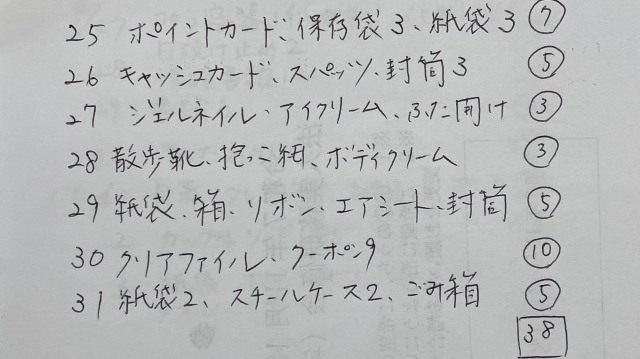 25 ポイントカード、保存袋3、紙袋3 ⑦
26 キャッシュカード、スパッツ、封筒3 ⑤
27 ジェルネイル・アイクリーム、ふた開け ③
28 散歩靴、抱っこ紐、ボディクリーム ③
29 紙袋、箱、リボン、エアシート、封筒 ⑤
30 クリアファイル・クーポン9 ⑩
31 紙袋2、スチールケース2、ごみ箱 ⑤
38